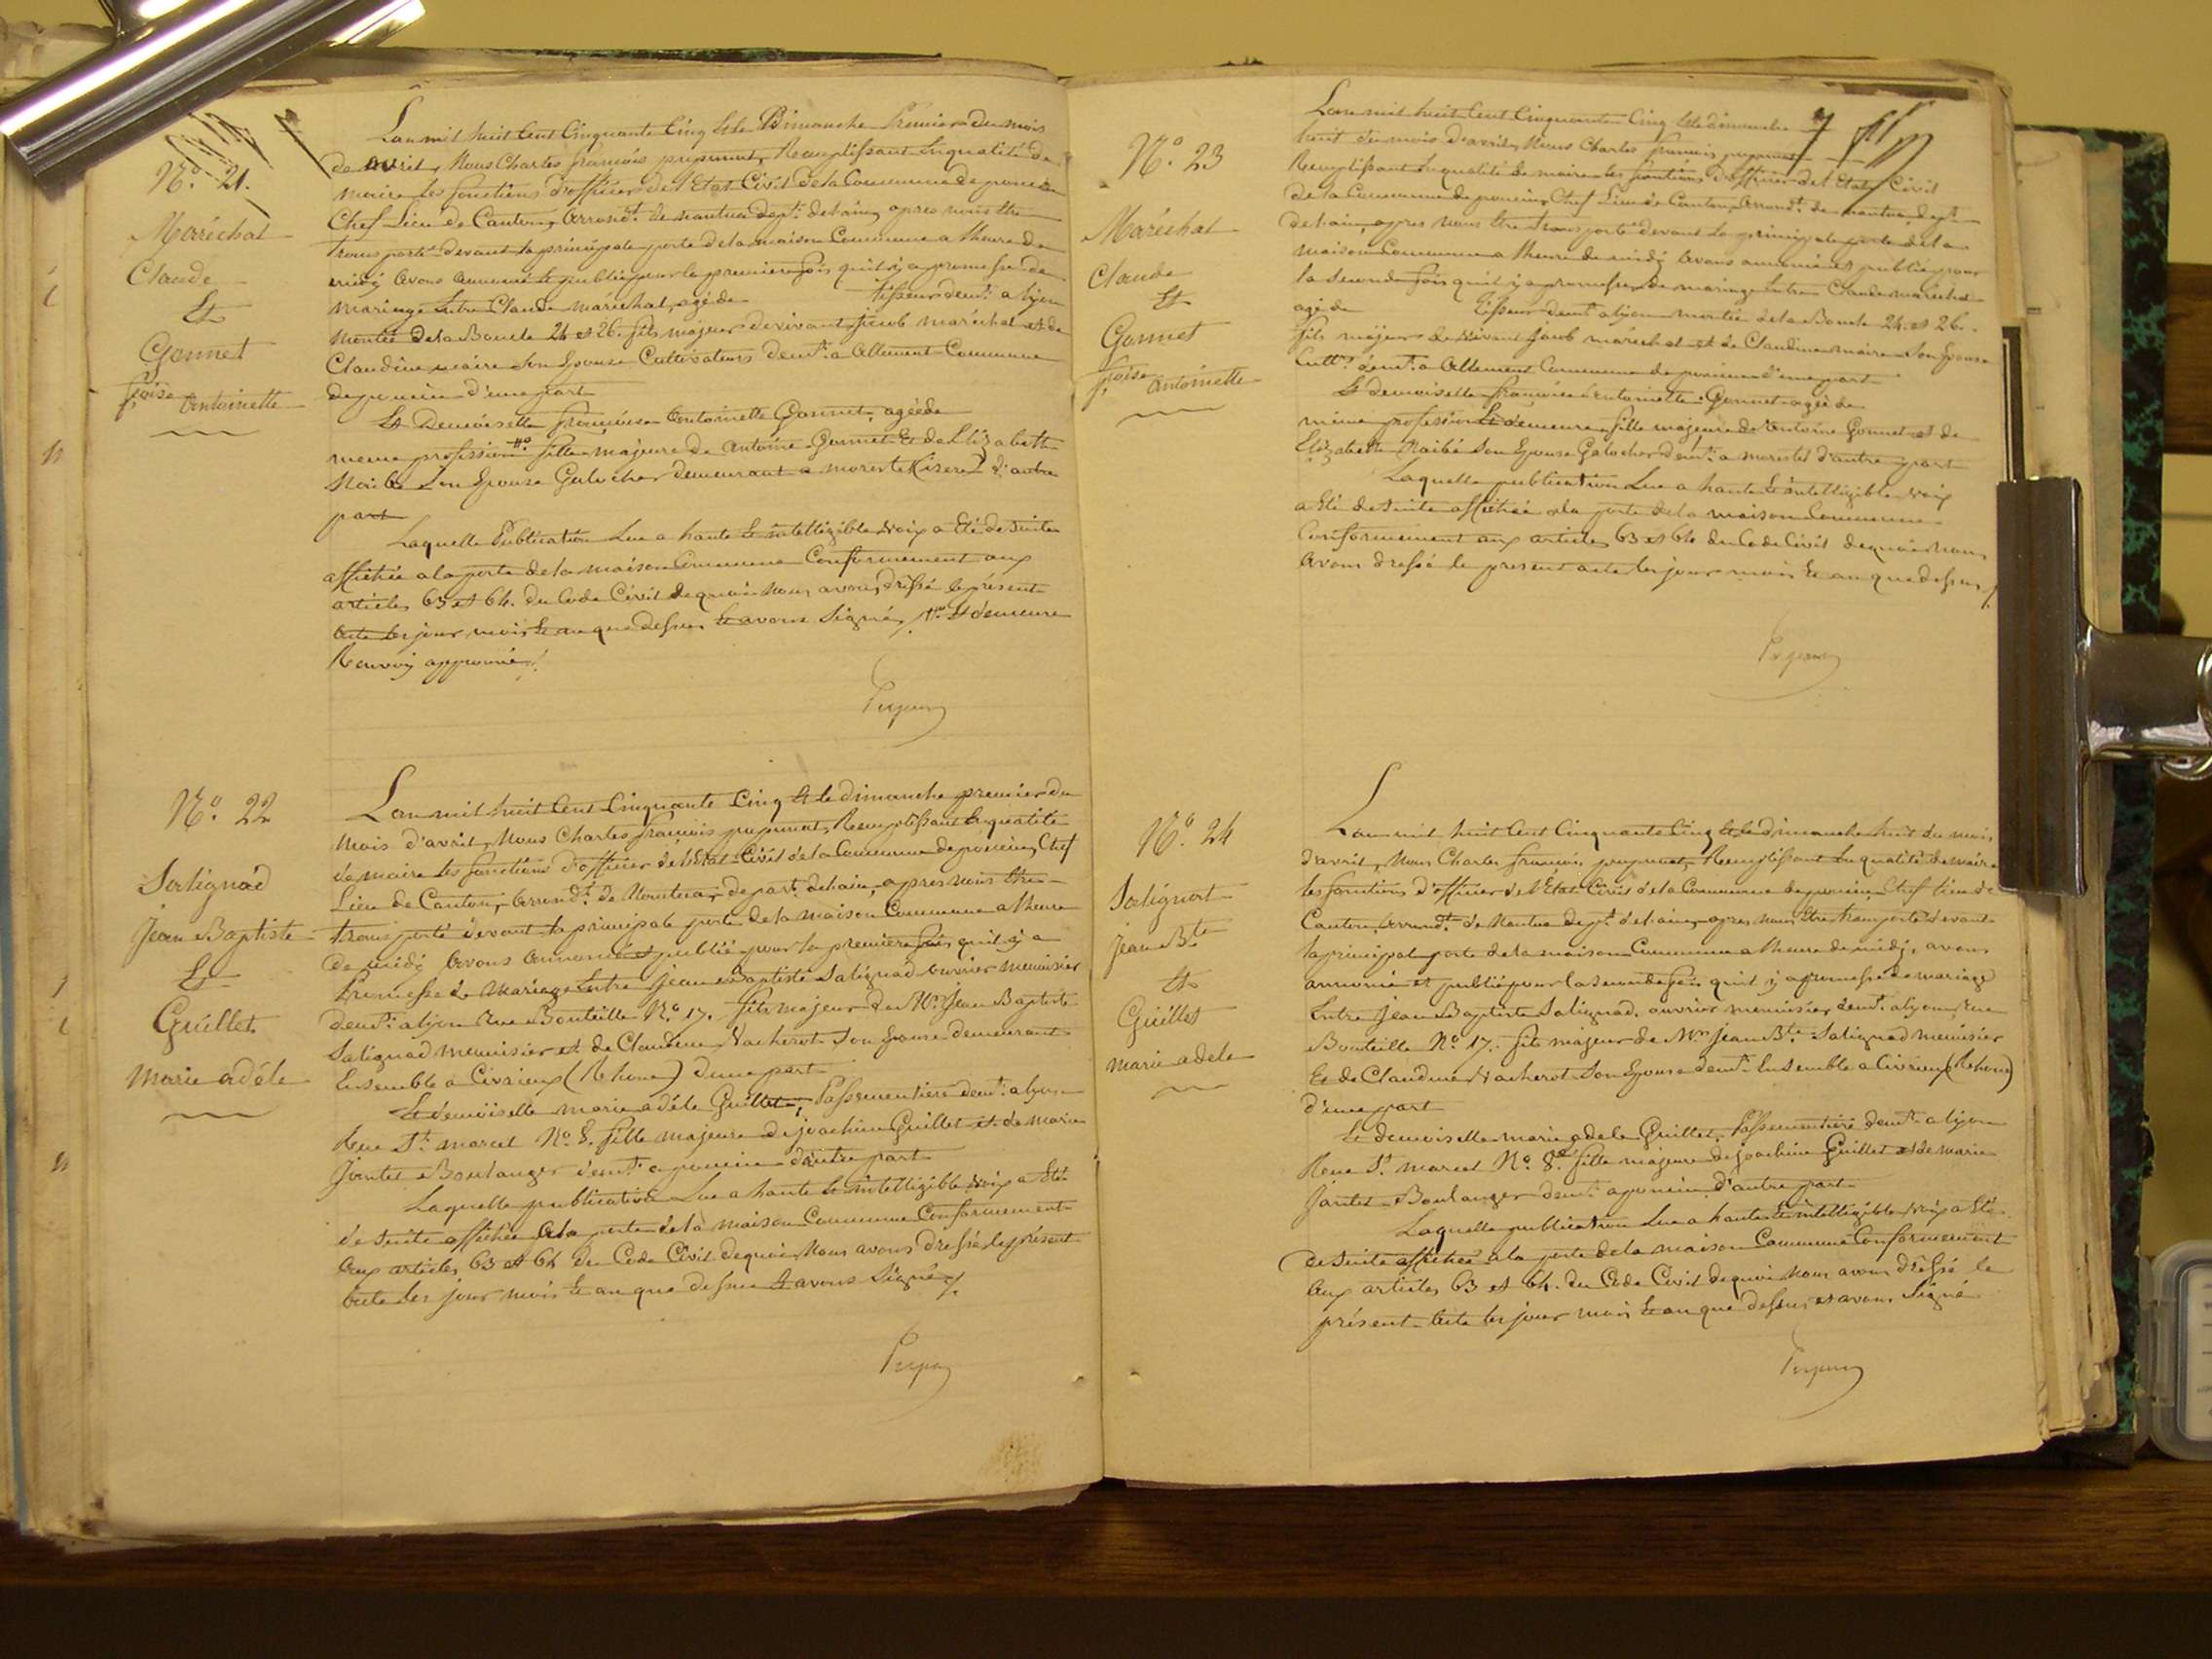 N.º 21.
Maréchal
Claude
Et
Gonnet
f.çoise Antoinette
Lan mil huit Cent Cinquante Cinq Et le Dimanche Premier du mois
de avril, Nous Charles françois pupunat, Remplissant En qualité de
maire les fonctions d'officier de l'Etat Civil de la Commune de poncin
Chef Lieu de Canton, Arrond.t de nantua dep.t de lain, apres nous Etre
transporté devant la principale porte de la maison Commune a lheure de
midi avons annoncé Et publié pour la premiere fois quil y a promesse de
mariage Entre Claude maréchal, agé de tisseur dem.t a lyon
montée de la Boucle 24 et 26. fils majeur de vivant Jacob maréchal et de
Claudine maire Son Epouse Cultivateurs dem.t a Allement Commune
de poncin d'une part
Et Demoiselle françoise Antoinette Gonnet, agée de
meme profession fille majeure de Antoine Gonnet Et de Elizabeth
Son Epouse Galocher demeurant a morestel (isere) d'autre
part
Laquelle Publication Lue a haute Et intelligible voix a Eté de Suite
affichée a la porte de la maison Commune Conformement aux
articles 63 et 64. du Code Civil de quoi Nous avons dressé le présent
acte les jour mois Et an que dessus Et avons Signé, Et demeure
Renvoi approuvé
N.º 22
Salignad
Jean Baptiste
Et
Guillet
Marie adéle
Lan mil huit Cent Cinquante Cinq Et le dimanche premier du
mois d'avril, Nous Charles françois pupunat, Remplissant En qualité
de maire les fonctions d'officier de l'Etat Civil de la Commune de poncin, Chef
Lieu de Canton, Arrond.t de Nantua, depart. de lain, apres nous Etre
transporté devant la principale porte de la maison Commune a lheure
de midi Avons annoncé et publié pour la premiere fois quil y a
Promesse de Mariage Entre jean Baptiste Salignad ouvrier menuisier
dem.t a lyon Rue Bouteille N.º 17. fils majeur de M.r Jean Baptiste
Salignad menuisier et de Claudine Vacherot Son Epouse demeurant
Ensemble a Civrieux (Rhone) d'une part
Et demoiselle marie adéle Guillet, Passementiere dem.t a lyon
Rue S.t marcel N.º 8. fille majeure de joachim Guillet et de marie
Jantet Boulanger dem.t a poncin d'autre part
Laquelle publication Lue a haute Et intelligible voix a Eté
de Suite affichée a la porte de la maison Commune Conformement
Aux articles 63 et 64 du Code Civil de quoi Nous avons dressé le présent
acte les jour mois Et an que dessus Et avons Signé
N.º 23
Maréchal
Claude
Et
Gonnet
f.çoise Antoinette
Lan mil huit Cent Cinquante Cinq Et le dimanche
huit du mois d'avril, Nous Charles françois pupunat
Remplissant En qualité de maire les fontions d'officier de l'Etat Civil
de la Commune de poncin, Chef Lieu de Canton, Arrond.t de nantua, dep.t
de lain, apres nous Etre transporté devant la principale porte de la
maison Commune a lheure de midi Avons annoncé et publié pour
la seconde fois quil y a promesse de mariage Entre Claude maréchal
agé de Tisseur dem.t a lyon montée de la Boucle 24. et 26.
fils majeur de vivant jacob maréchal et de Claudine maire Son Epouse
Cult.rs dem.t a Allement Commune de poncin d'une part
Et demoiselle françoise Antoinette Gonnet agée de
même profession Et demeure fille majeure de Antoine Gonnet et de
Elizabeth Son Epouse Galocher dem.t a morestel d'autre part
Laquelle publication Lue a haute Et intelligible voix
a Eté de Suite affichée a la porte de la maison Commune
Conformement aux articles 63 et 64 du Code Civil de quoi nous
Avons dressé le present acte les jour mois Et an que dessus
N.º 24
Salignat
Jean B.te
Et
Guillet
marie adele
Lan mil huit Cent Cinquante Cinq Et le dimanche huit du mois
d'avril, Nous Charles françois pupunat, Remplissant En qualité de maire
les fonctions d'officier de l'Etat Civil de la Commune de poncin, Chef lieu de
Canton, Arrond.t de Nantua dep.t de lain, apres nous Etre transporté devant
la principale porte de la maison Commune a lheure de midi, avons
annoncé et publié pour la seconde fois quil y a promesse de mariage
Entre Jean Baptiste Salignad. ouvrier menuisier dem.t a lyon, Rue
Bouteille N.º 17. fils majeur de M.r jean B.te Salignad menuisier
Et de Claudine Vacherot Son Epouse dem.t Ensemble a Civrieux (Rhone)
d'une part
Et demoiselle marie adele Guillet, Passementiere dem.t a lyon
Rue S.t marcel N.º 8. fille majeure de joachim Guillet et de marie
Jantet Boulanger dem.t a poncin d'autre part
Laquelle publication Lue a haute Et intelligible voix a Eté
de Suite affichée a la porte de la maison Commune Conformement
Aux articles 63 et 64. du Code Civil de quoi Nous avons dressé le
présent acte les jour mois Et an que dessus et avons Signé